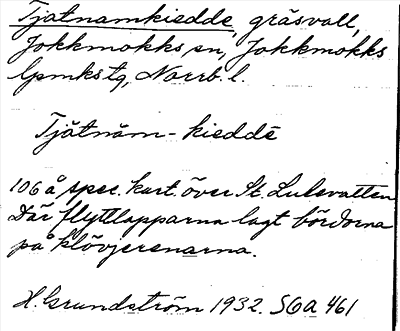 Tjatnamkiedde, gräsvall,
Jokkmokks sn, Jokkmokks
lpmks tg, Norrb. l.
Tjātnām-kieddē
106 å spec. kart. över St. Lulevatten
Där flyttlapparna lagt bördorna
på klövjerenarna.
H. Grundström 1932. SOa 461